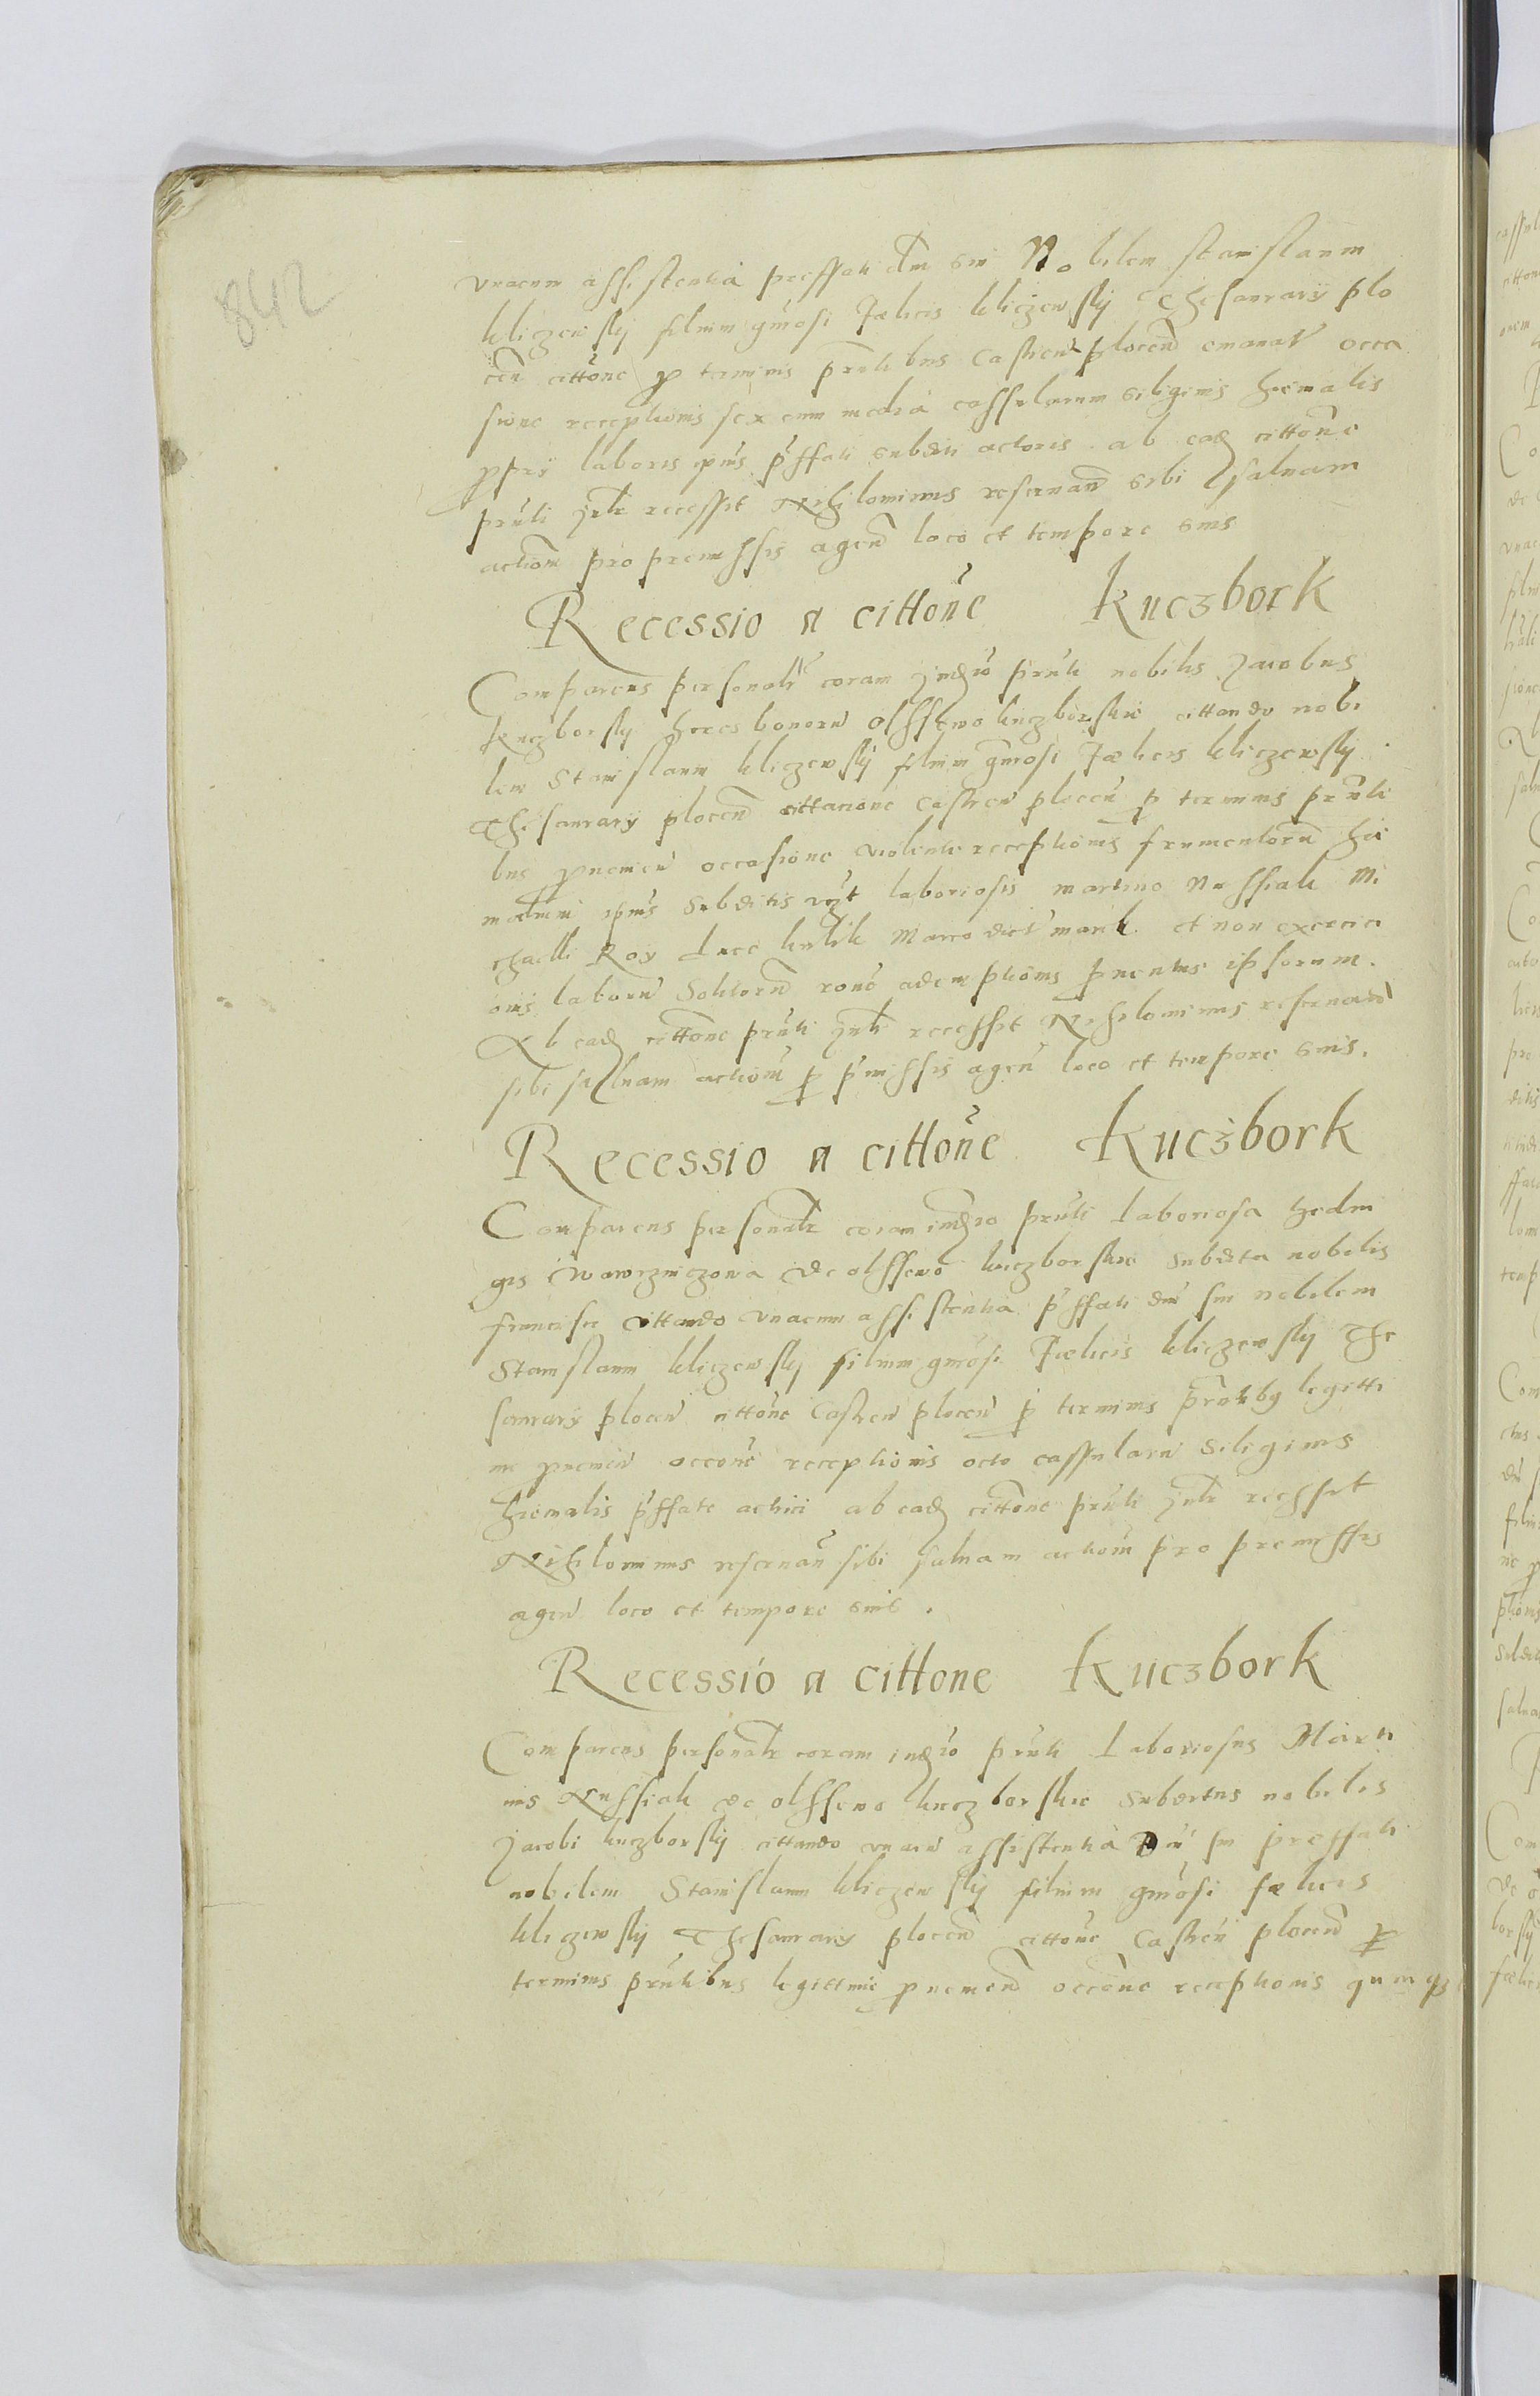 842
vnacum assistentia preffati dni sui Nobilem Stanislaum
kliczewskij filium gnosi Fælicis kliczewskij Thesaurarij plo
cen cittone p terminis pntibus Castren plocen emanat occa
sione receptionis sex cum media cassularum siliginis hiemalis
pprij laboris ipius pffati subditi actoris ab ead cittone
pnti Inlr recessit Nihilominus reseruand sibi saluam
actiom pro premissis agend loco et tempore suis
Recessio a cittone Kuczbork
Comparens personalr coram Iudicio pnti nobilis Jacobus
Kuczborskij heres bonoru olssewo kuczborskie cittando nobi
lem Stanislaum kliczewskij filium gnosi Fælicis kliczewskij
Thesaurarij plocen cittacione Castren plocen p terminis pnti
bus puenien occasione violente receptionis frumentoru hie
malium ipius subditis vzt laboriosis martino Nussiak Mi
chaelli Roy Luce kulik Marco dict marik et non exercici
onis laboru solitoru rone ademptionis puentus ipsorum.
Ab ead cittone pnti Inlr recessit Nihilominus reseruando
sibi saluam actiom p pmissis agen loco et tempore suis.
Recessio a cittone Kuczbork
Comparens personalr coram iudicio pnti Laboriosa hedui
gis Wawrzinczowa de olssewo kuczborskie subdita nobilis
francisci cittando vnacum assistentia pffati dni sui nobilem
Stanislaum kliczewskij filium gnosi Fælicis kliczewskij The
saurarij plocen cittone Castren plocen p terminis pntibq legitti
me puenien occone receptionis octo cassularu siliginis
hiemalis pffate actrici ab ead cittone pnti Inlr recessit
Nihilominus reseruan sibi saluam actiom pro premissis
agen loco et tempore suis.
Recessio a cittone Kuczbork
Comparens personalr coram iudicio pnti Laboriosus Marti
nus Nussiak de olssewo kuczborskie subditus nobilis
Jacobi kuczborskij cittando vnacu assistentia Dni sui preffati
nobilem Stanislaum kliczewskij filium gnosi fælicis
kliczewskij Thesaurarij plocen cittone Castren plocen p
terminis pntibus legittime puenien occone receptionis quinq